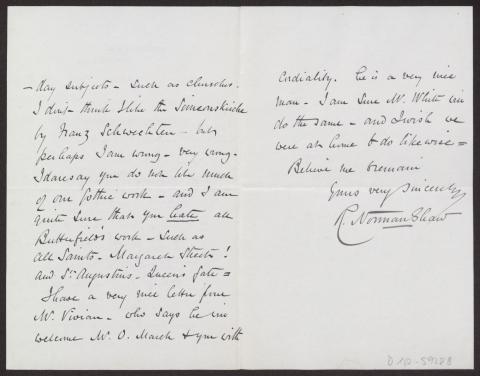 - day subjects - such as churches.
I don't think I like the Simeonskirche
by Franz Schwechten - but
perhaps I am wrong - very wrong.
I daresay you do not like much
of our Gothic work - and I am
quite sure that you hate all
Butterfield's work - such as
All Saints - Margaret Street!
and St Augustins - Queen's Gate =
I have a very nice letter from
Mr. Vivian - who says he will
welcome Mr. O. March & you with
cordiality. He is a very nice
man - I am sure Mr. White will
do the same - and I wish we
were at home to do likewise =
Believe me to remain
Yours very sincerely
R. Norman Shaw